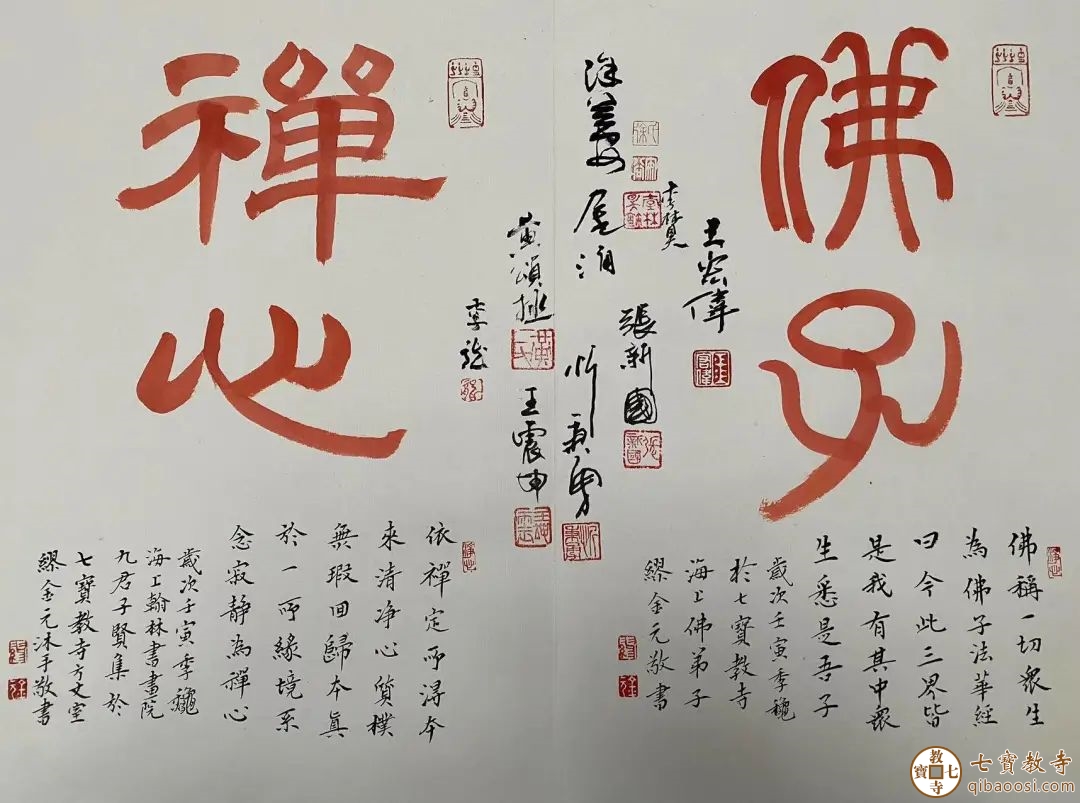 佛子
佛稱一切衆生
為佛子法華經
曰今此三界皆
是我有其中衆
生悉是吾子
歲次壬寅季龝
於七寶教寺
海上佛弟子
繆金元敬書
王宏偉
張新國
黄頌
王震坤
禪心
依禪定而淂本
來清净心質樸
無瑕回歸本真
於一所緣境系
念寂静為禪心
歲次壬寅季龝
海上翰林書畫院
九君子賢集於
七寶教寺方丈室
繆金元沐手敬書
七寶教寺
qibaoosi.com